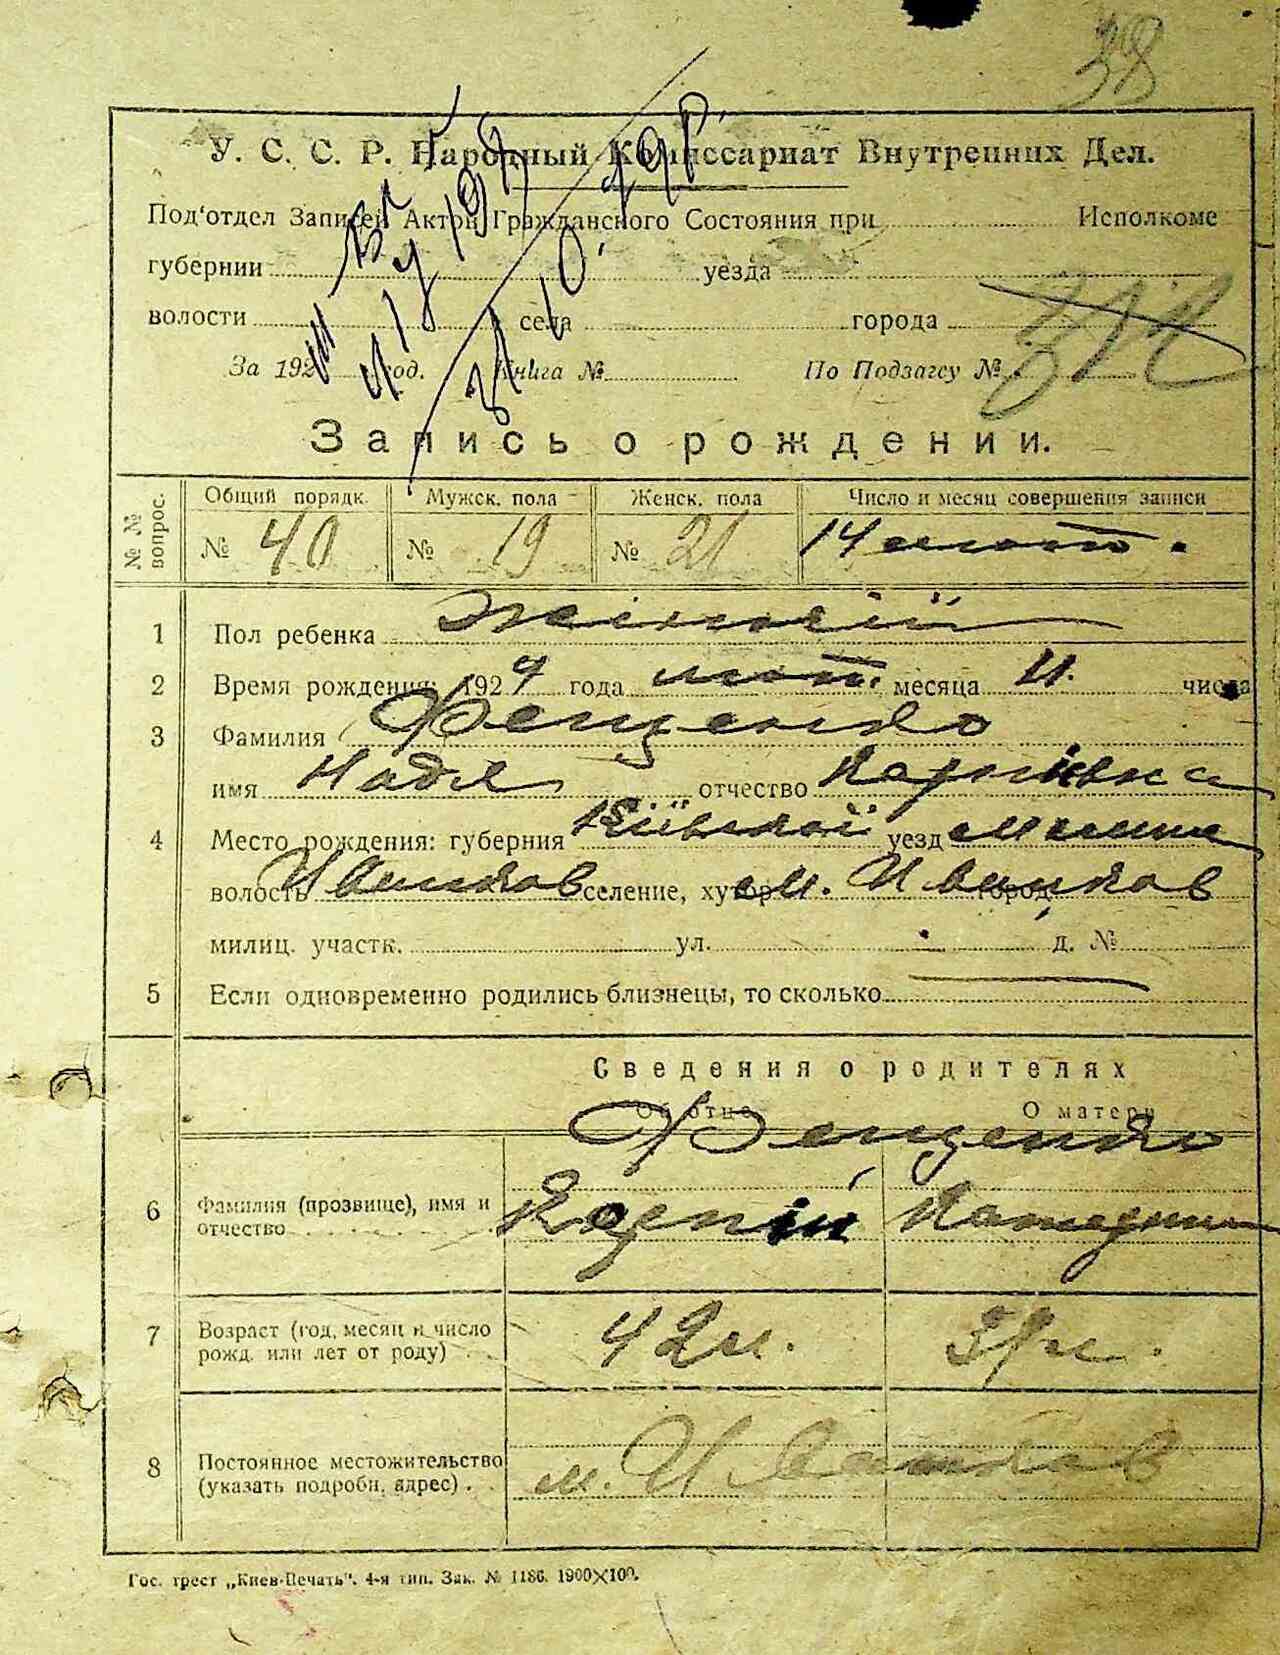 38
У. С. С. Р. Народный Комиссариат Внутренних Дел.
Под'отдел Записей Актов Гражданского Состояния при Исполкоме
губернии уезда
волости села города
За 192 год. Книга № По Подзагсу №
Запись о рождении.
№ № вопрос. Общий порядк. Мужск. пола Женск. пола Число и месяц совершения записи
№ 40 № 19 № 21 14 лютого.
1 Пол ребенка жіночій
2 Время рождения: 1924 года лют. месяца 11. числа
3 Фамилия Фещенко
имя Надя отчество
4 Место рождения: губерния Київської уезд
волость Иванков селение, хутор м. Иванков город
милиц. участк. ул. д. №
5 Если одновременно родились близнецы, то сколько
Сведения о родителях
Об отце О матери
Фещенко
6 Фамилия (прозвище), имя и
отчество
7 Возраст (год, месяц и число
рожд. или лет от роду) 42 л.
8 Постоянное местожительство
(указать подробн. адрес) м. Иванков
Гос. трест „Киев-Печать". 4-я тип. Зак. № 1186. 1900×100.